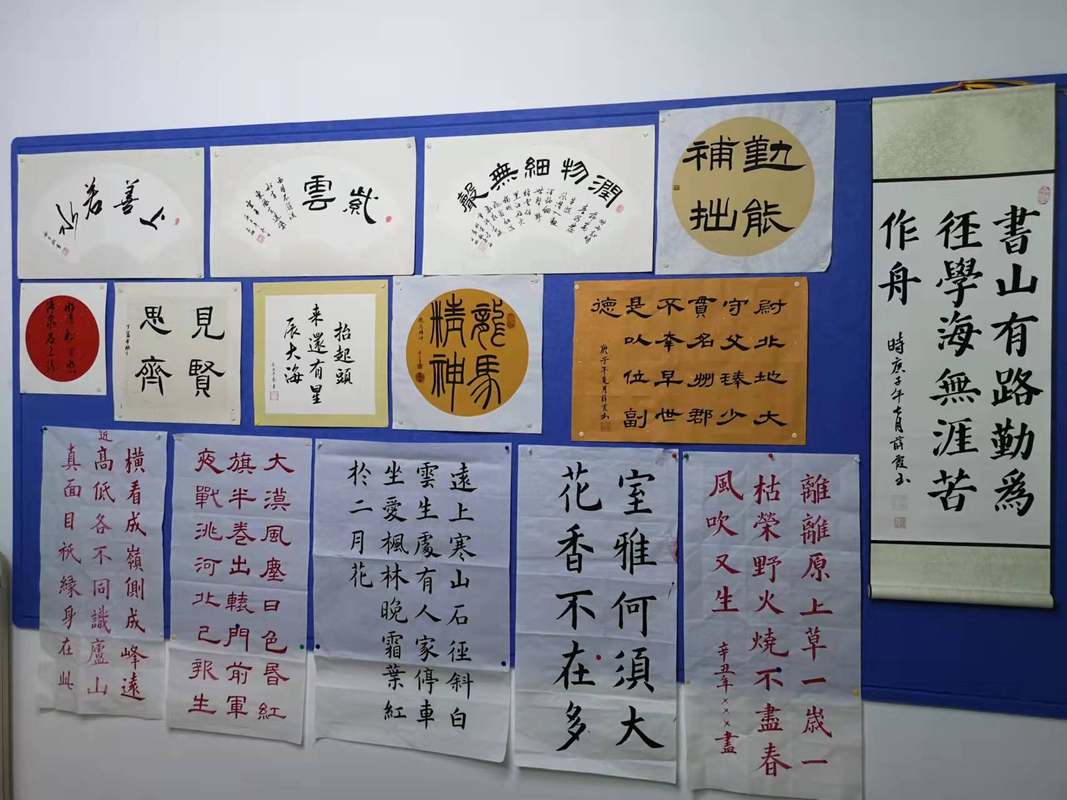 上善若水
紫雲
潤物細無聲
勤能
補拙
見賢
思齊
抬起頭
來還有星
辰大海
龍馬
精神
尉北地大
守父臻少
貫名州郡
不幸早世
是以位副
德
書山有路勤為
徑學海無涯苦
作舟
時庚子年七月薛霞书
橫看成嶺側成峰遠
近高低各不同識廬山
真面目祇緣身在此
大漠風塵日色昏紅
旗半卷出轅門前軍
夜戰洮河北已報生
遠上寒山石徑斜白
雲生處有人家停車
坐愛楓林晚霜葉紅
於二月花
室雅何須大
花香不在多
離離原上草一歲一
枯榮野火燒不盡春
風吹又生
辛丑年×××畫